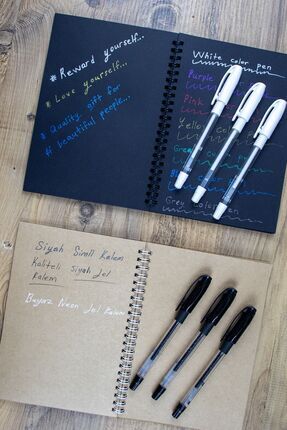 # Reward yourself...
# Love yourself...
# Quality, gift for
# beautiful people...
White color pen
Purple
Pink
Yello
Green
Blue
Grey Color Pen
Siyah Simli Kalem
Kaliteli Siyah Jel
Kalem
Beyaz Neon Jel Kalem